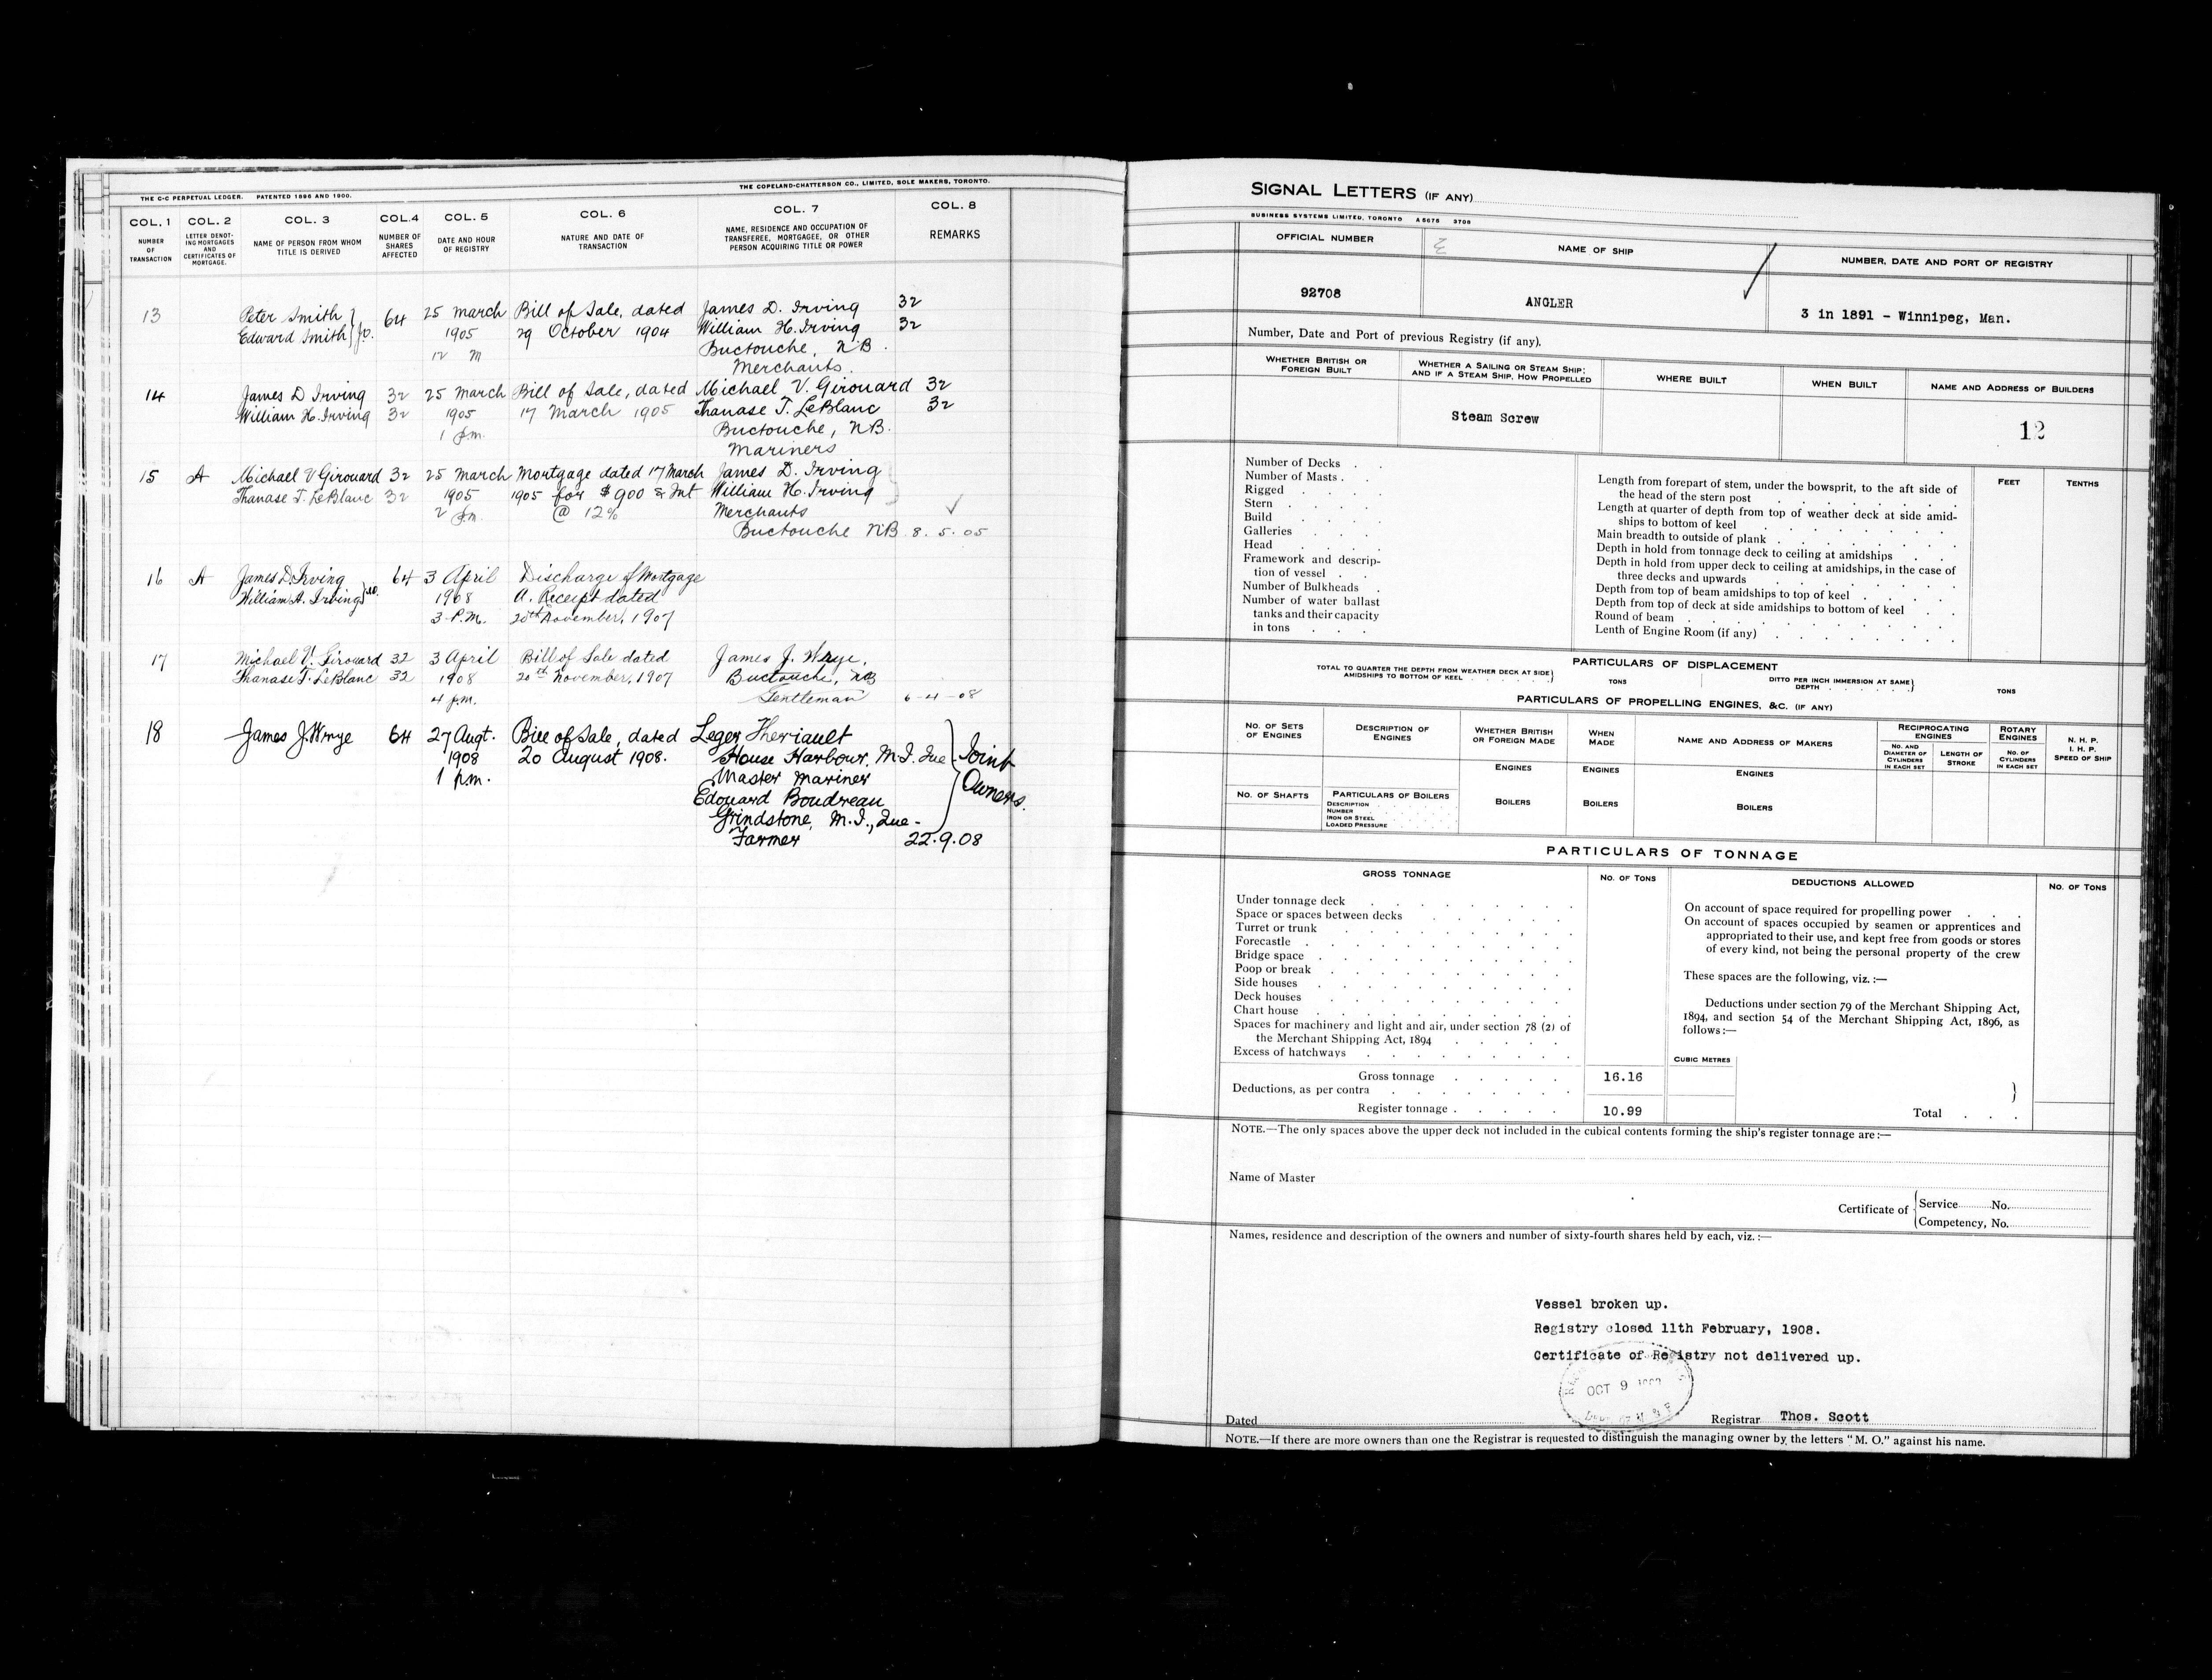 THE C-C PERPETUAL LEDGER. PATENTED 1896 AND 1900. THE COPELAND-CHATTERSON CO., LIMITED, SOLE MAKERS, TORONTO.
COL. 1 COL. 2 COL. 3 COL. 4 COL. 5 COL. 6 COL. 7 COL. 8
NUMBER OF TRANSACTION
LETTER DENOTING MORTGAGES AND CERTIFICATES OF MORTGAGE.
NAME OF PERSON FROM WHOM TITLE IS DERIVED
NUMBER OF SHARES AFFECTED
DATE AND HOUR OF REGISTRY
NATURE AND DATE OF TRANSACTION
NAME, RESIDENCE AND OCCUPATION OF TRANSFEREE, MORTGAGEE, OR OTHER PERSON ACQUIRING TITLE OR POWER
REMARKS
13 Peter Smith } 64 25 March Bill of Sale, dated James D. Irving 32
Edward Smith } Jo. 1905 29 October 1904 William H. Irving 32
12 M Buctouche, NB.
Merchants.
14 James D Irving 32 25 March Bill of Sale, dated Michael V. Girouard 32
William H. Irving 32 1905 17 March 1905 Thanase T. LeBlanc 32
1 p.m. Buctouche, NB.
Mariners
15 A Michael V Girouard 32 25 March Mortgage dated 17 March James D. Irving
Thanase T. LeBlanc 32 1905 1905 for $900 & Int William H. Irving
2 p.m. @ 12% Merchants ✓
Buctouche NB 8.5.05
16 A James D. Irving 64 3 April Discharge of Mortgage
William H. Irving } Jo. 1908 A. Receipt dated
3 P.M. 20th November, 1907
17 Michael V. Girouard 32 3 April Bill of Sale dated James J. Wrye,
Thanase T. LeBlanc 32 1908 20th November, 1907 Buctouche, NB
4 p.m. Gentleman 6-4-08
18 James J. Wrye 64 27 Augt. Bill of Sale, dated Leger Theriault
1908 20 August 1908. House Harbour, M.I. Que - Joint
1 p.m. Master Mariner
Edouard Boudreau Owners.
Grindstone, M.I., Que -
Farmer 22.9.08
SIGNAL LETTERS (IF ANY)
BUSINESS SYSTEMS LIMITED, TORONTO A5675 3706
OFFICIAL NUMBER NAME OF SHIP NUMBER, DATE AND PORT OF REGISTRY
92708 ANGLER 3 in 1891 - Winnipeg, Man.
Number, Date and Port of previous Registry (if any).
WHETHER BRITISH OR FOREIGN BUILT
WHETHER A SAILING OR STEAM SHIP; AND IF A STEAM SHIP, HOW PROPELLED
WHERE BUILT WHEN BUILT NAME AND ADDRESS OF BUILDERS
Steam Screw 12
Number of Decks
Number of Masts
Rigged
Stern
Build
Galleries
Head
Framework and descrip-
tion of vessel
Number of Bulkheads
Number of water ballast
tanks and their capacity
in tons
FEET TENTHS
Length from forepart of stem, under the bowsprit, to the aft side of
the head of the stern post
Length at quarter of depth from top of weather deck at side amid-
ships to bottom of keel
Main breadth to outside of plank
Depth in hold from tonnage deck to ceiling at amidships
Depth in hold from upper deck to ceiling at amidships, in the case of
three decks and upwards
Depth from top of beam amidships to top of keel
Depth from top of deck at side amidships to bottom of keel
Round of beam
Lenth of Engine Room (if any)
PARTICULARS OF DISPLACEMENT
TOTAL TO QUARTER THE DEPTH FROM WEATHER DECK AT SIDE AMIDSHIPS TO BOTTOM OF KEEL } TONS
DITTO PER INCH IMMERSION AT SAME DEPTH } TONS
PARTICULARS OF PROPELLING ENGINES, &C. (IF ANY)
NO. OF SETS OF ENGINES
DESCRIPTION OF ENGINES
WHETHER BRITISH OR FOREIGN MADE
WHEN MADE
NAME AND ADDRESS OF MAKERS
RECIPROCATING ENGINES
NO. AND DIAMETER OF CYLINDERS IN EACH SET
LENGTH OF STROKE
ROTARY ENGINES
NO. OF CYLINDERS IN EACH SET
N. H. P.
I. H. P.
SPEED OF SHIP
ENGINES ENGINES ENGINES
NO. OF SHAFTS PARTICULARS OF BOILERS BOILERS BOILERS BOILERS
DESCRIPTION
NUMBER
IRON OR STEEL
LOADED PRESSURE
PARTICULARS OF TONNAGE
GROSS TONNAGE NO. OF TONS DEDUCTIONS ALLOWED NO. OF TONS
Under tonnage deck
Space or spaces between decks
Turret or trunk
Forecastle
Bridge space
Poop or break
Side houses
Deck houses
Chart house
Spaces for machinery and light and air, under section 78 (2) of
the Merchant Shipping Act, 1894
Excess of hatchways
Gross tonnage 16.16
Deductions, as per contra
Register tonnage 10.99
On account of space required for propelling power
On account of spaces occupied by seamen or apprentices and
appropriated to their use, and kept free from goods or stores
of every kind, not being the personal property of the crew
These spaces are the following, viz.:—
Deductions under section 79 of the Merchant Shipping Act,
1894, and section 54 of the Merchant Shipping Act, 1896, as
follows:—
CUBIC METRES
Total
NOTE.—The only spaces above the upper deck not included in the cubical contents forming the ship's register tonnage are:—
Name of Master
Certificate of { Service No.
Competency, No.
Names, residence and description of the owners and number of sixty-fourth shares held by each, viz.:—
Vessel broken up.
Registry closed 11th February, 1908.
Certificate of Registry not delivered up.
OCT 9
Dated Registrar Thos. Scott
NOTE.—If there are more owners than one the Registrar is requested to distinguish the managing owner by the letters "M. O." against his name.